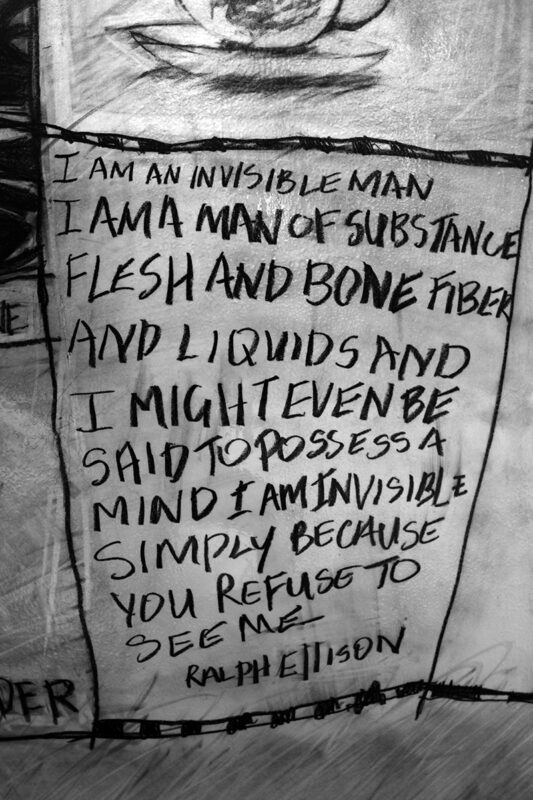 I AM AN INVISIBLE MAN
I AM A MAN OF SUBSTANCE
FLESH AND BONE FIBER
AND LIQUIDS AND
I MIGHT EVEN BE
SAID TO POSSESS A
MIND I AM INVISIBLE
SIMPLY BECAUSE
YOU REFUSE TO
SEE ME
RALPH ELLISON